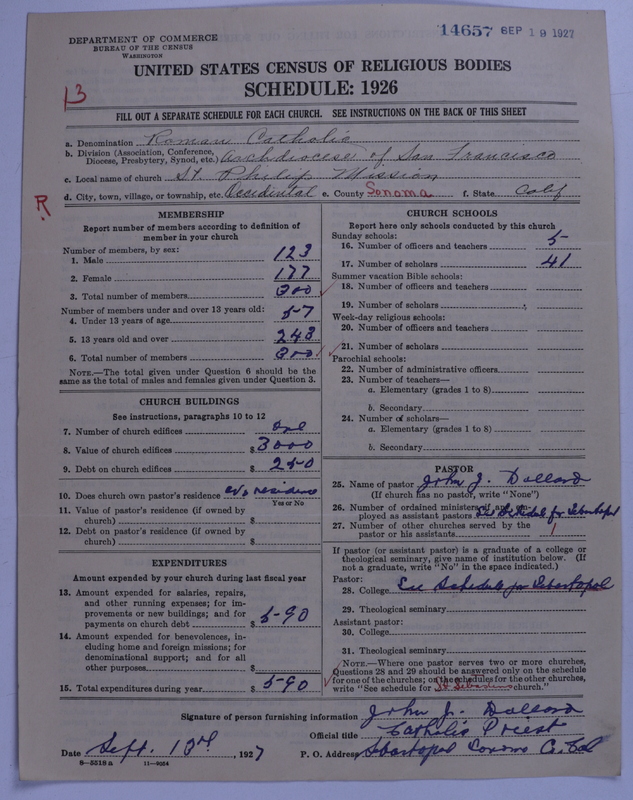 14657 SEP 19 1927
DEPARTMENT OF COMMERCE
BUREAU OF THE CENSUS
WASHINGTON
UNITED STATES CENSUS OF RELIGIOUS BODIES
SCHEDULE: 1926
13
FILL OUT A SEPARATE SCHEDULE FOR EACH CHURCH. SEE INSTRUCTIONS ON THE BACK OF THIS SHEET
a. Denomination Roman Catholic
b. Division (Association, Conference, Diocese, Presbytery, Synod, etc.) Archdiocese of San Francisco
c. Local name of church St. Philip Mission
d. City, town, village, or township, etc. Occidental e. County Sonoma f. State Calif
R
MEMBERSHIP
Report number of members according to definition of
member in your church
Number of members, by sex:
1. Male 123
2. Female 177
3. Total number of members 300
Number of members under and over 13 years old:
4. Under 13 years of age 57
5. 13 years old and over 243
6. Total number of members 300
NOTE.—The total given under Question 6 should be the
same as the total of males and females given under Question 3.
CHURCH BUILDINGS
See instructions, paragraphs 10 to 12
7. Number of church edifices one
8. Value of church edifices $ 3000
9. Debt on church edifices $ 250
10. Does church own pastor's residence no residence
Yes or No
11. Value of pastor's residence (if owned by
church) $
12. Debt on pastor's residence (if owned by
church) $
EXPENDITURES
Amount expended by your church during last fiscal year
13. Amount expended for salaries, repairs,
and other running expenses; for im-
provements or new buildings; and for
payments on church debt $ 590
14. Amount expended for benevolences, in-
cluding home and foreign missions; for
denominational support; and for all
other purposes $
15. Total expenditures during year $ 590
CHURCH SCHOOLS
Report here only schools conducted by this church
Sunday schools:
16. Number of officers and teachers 5
17. Number of scholars 41
Summer vacation Bible schools:
18. Number of officers and teachers
19. Number of scholars
Week-day religious schools:
20. Number of officers and teachers
21. Number of scholars
Parochial schools:
22. Number of administrative officers
23. Number of teachers—
a. Elementary (grades 1 to 8)
b. Secondary
24. Number of scholars—
a. Elementary (grades 1 to 8)
b. Secondary
PASTOR
25. Name of pastor John J. Dollard
(If church has no pastor, write "None")
26. Number of ordained ministers, if any, em-
ployed as assistant pastors See Schedule for Sebastopol
27. Number of other churches served by the
pastor or his assistants 1
If pastor (or assistant pastor) is a graduate of a college or
theological seminary, give name of institution below. (If
not a graduate, write "No" in the space indicated.)
Pastor:
28. College See Schedule for Sebastopol
29. Theological seminary
Assistant pastor:
30. College
31. Theological seminary
NOTE.—Where one pastor serves two or more churches,
Questions 28 and 29 should be answered only on the schedule
for one of the churches; on the schedules for the other churches,
write "See schedule for St Sebastian church."
Signature of person furnishing information John J. Dollard
Official title Catholic Priest
Date Sept. 13rd, 1927 P. O. Address Sebastopol Sonoma Co. Cal
8—5318a 11—9064